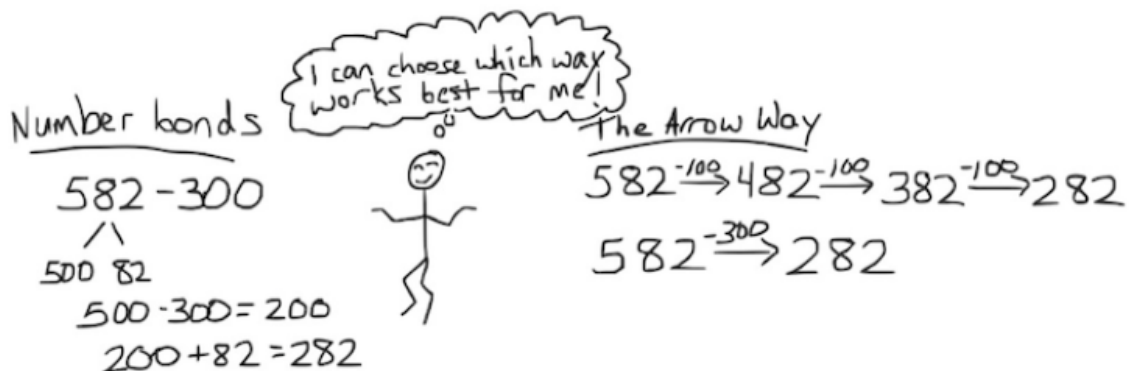 I can choose which way
works best for me!
Number bonds
582 - 300
500 82
500 - 300 = 200
200 + 82 = 282
The Arrow Way
582 -100→ 482 -100→ 382 -100→ 282
582 -300→ 282